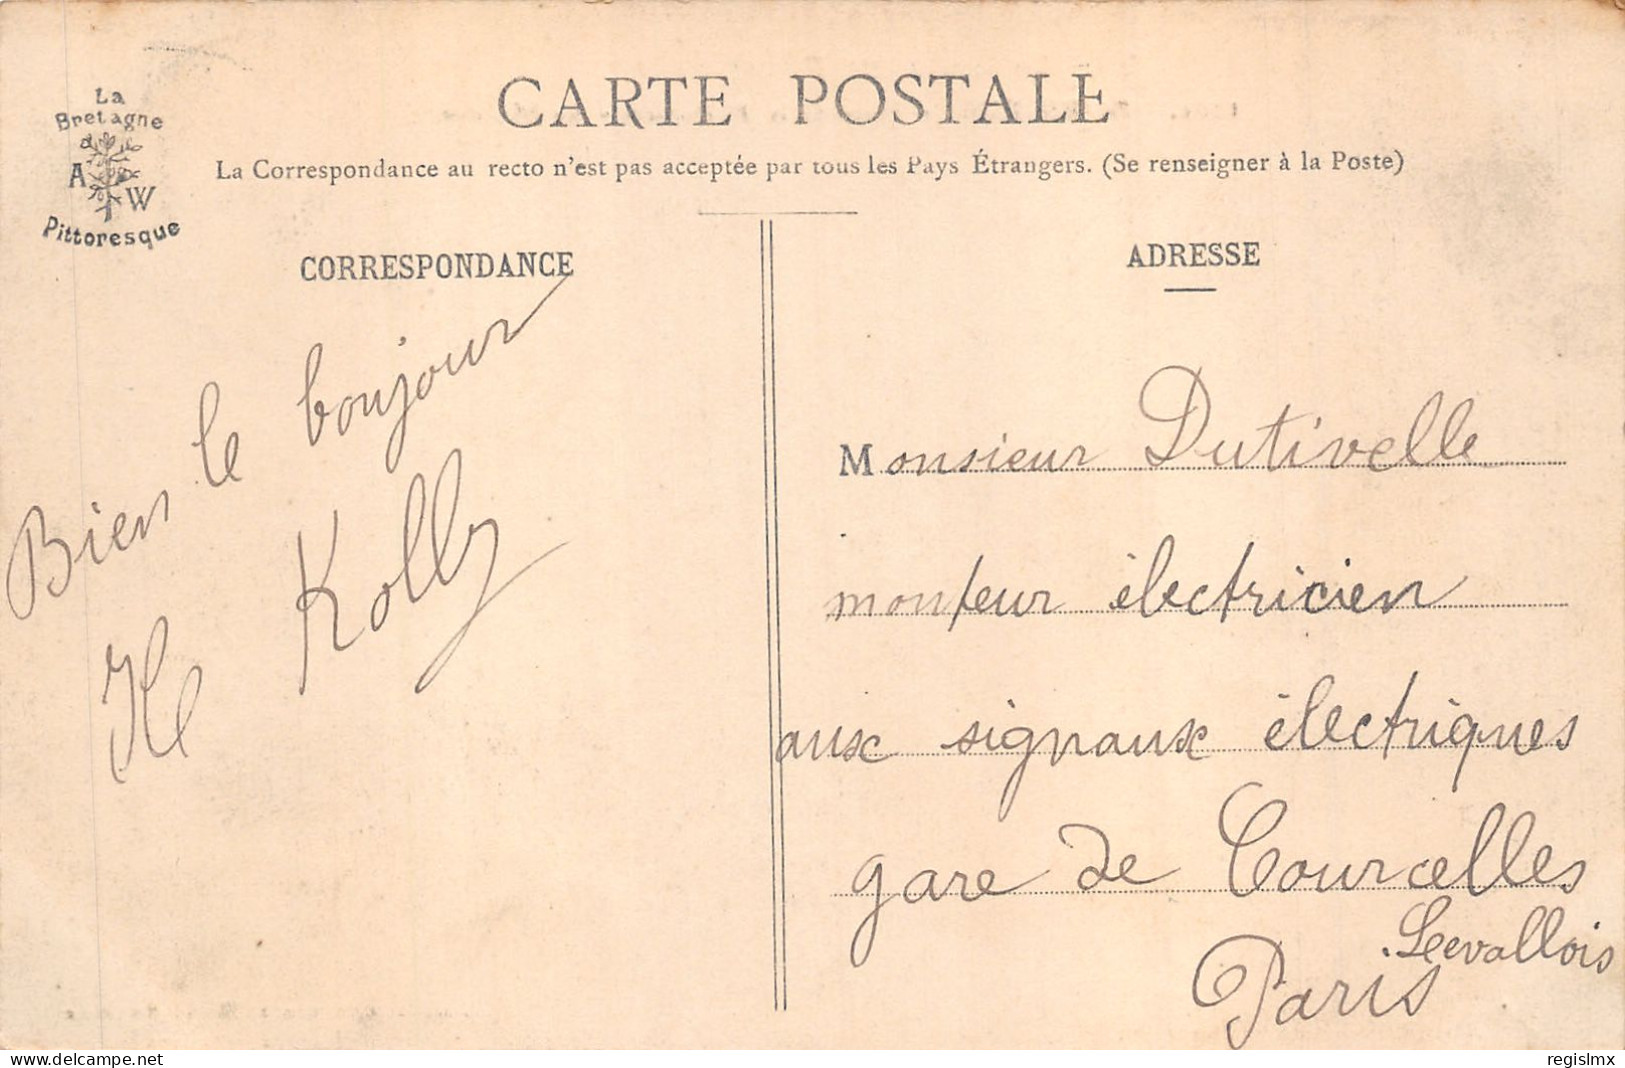 La
Bretagne
A W
Pittoresque
CARTE POSTALE
La Correspondance au recto n'est pas acceptée par tous les Pays Étrangers. (Se renseigner à la Poste)
CORRESPONDANCE
Bien le bonjour
H Kolly
ADRESSE
Monsieur Dutivelle
monteur électricien
aux signaux électriques
gare de Courcelles
Levallois
Paris
www.delcampe.net
regislmx